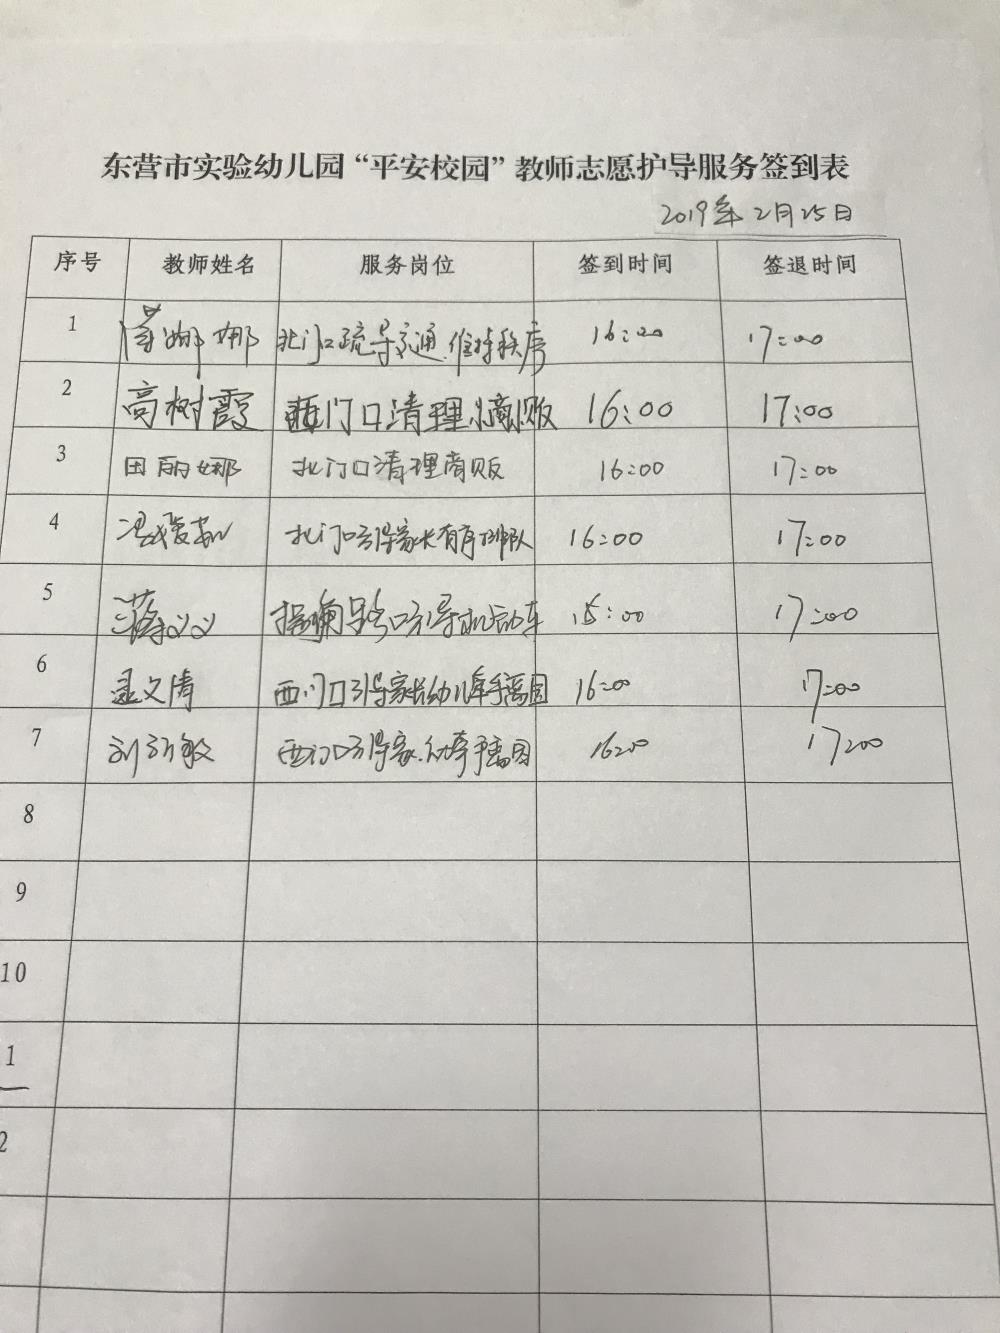 东营市实验幼儿园“平安校园”教师志愿护导服务签到表
2019年2月25日
序号 教师姓名 服务岗位 签到时间 签退时间
1 娜娜 北门口疏导交通.维持秩序 16:00 17:00
2 高树霞 西门口清理商贩 16:00 17:00
3 田丽娜 北门口清理商贩 16:00 17:00
4 北门口引导家长有序排队 16:00 17:00
5 蒋义义 路口引导机动车 15:00 17:00
6 孟文清 西门口引导家长幼儿牵手离园 16:00 17:00
7 刘 敏 西门口引导家.幼牵手离园 16:00 17:00
8
9
10
1
2